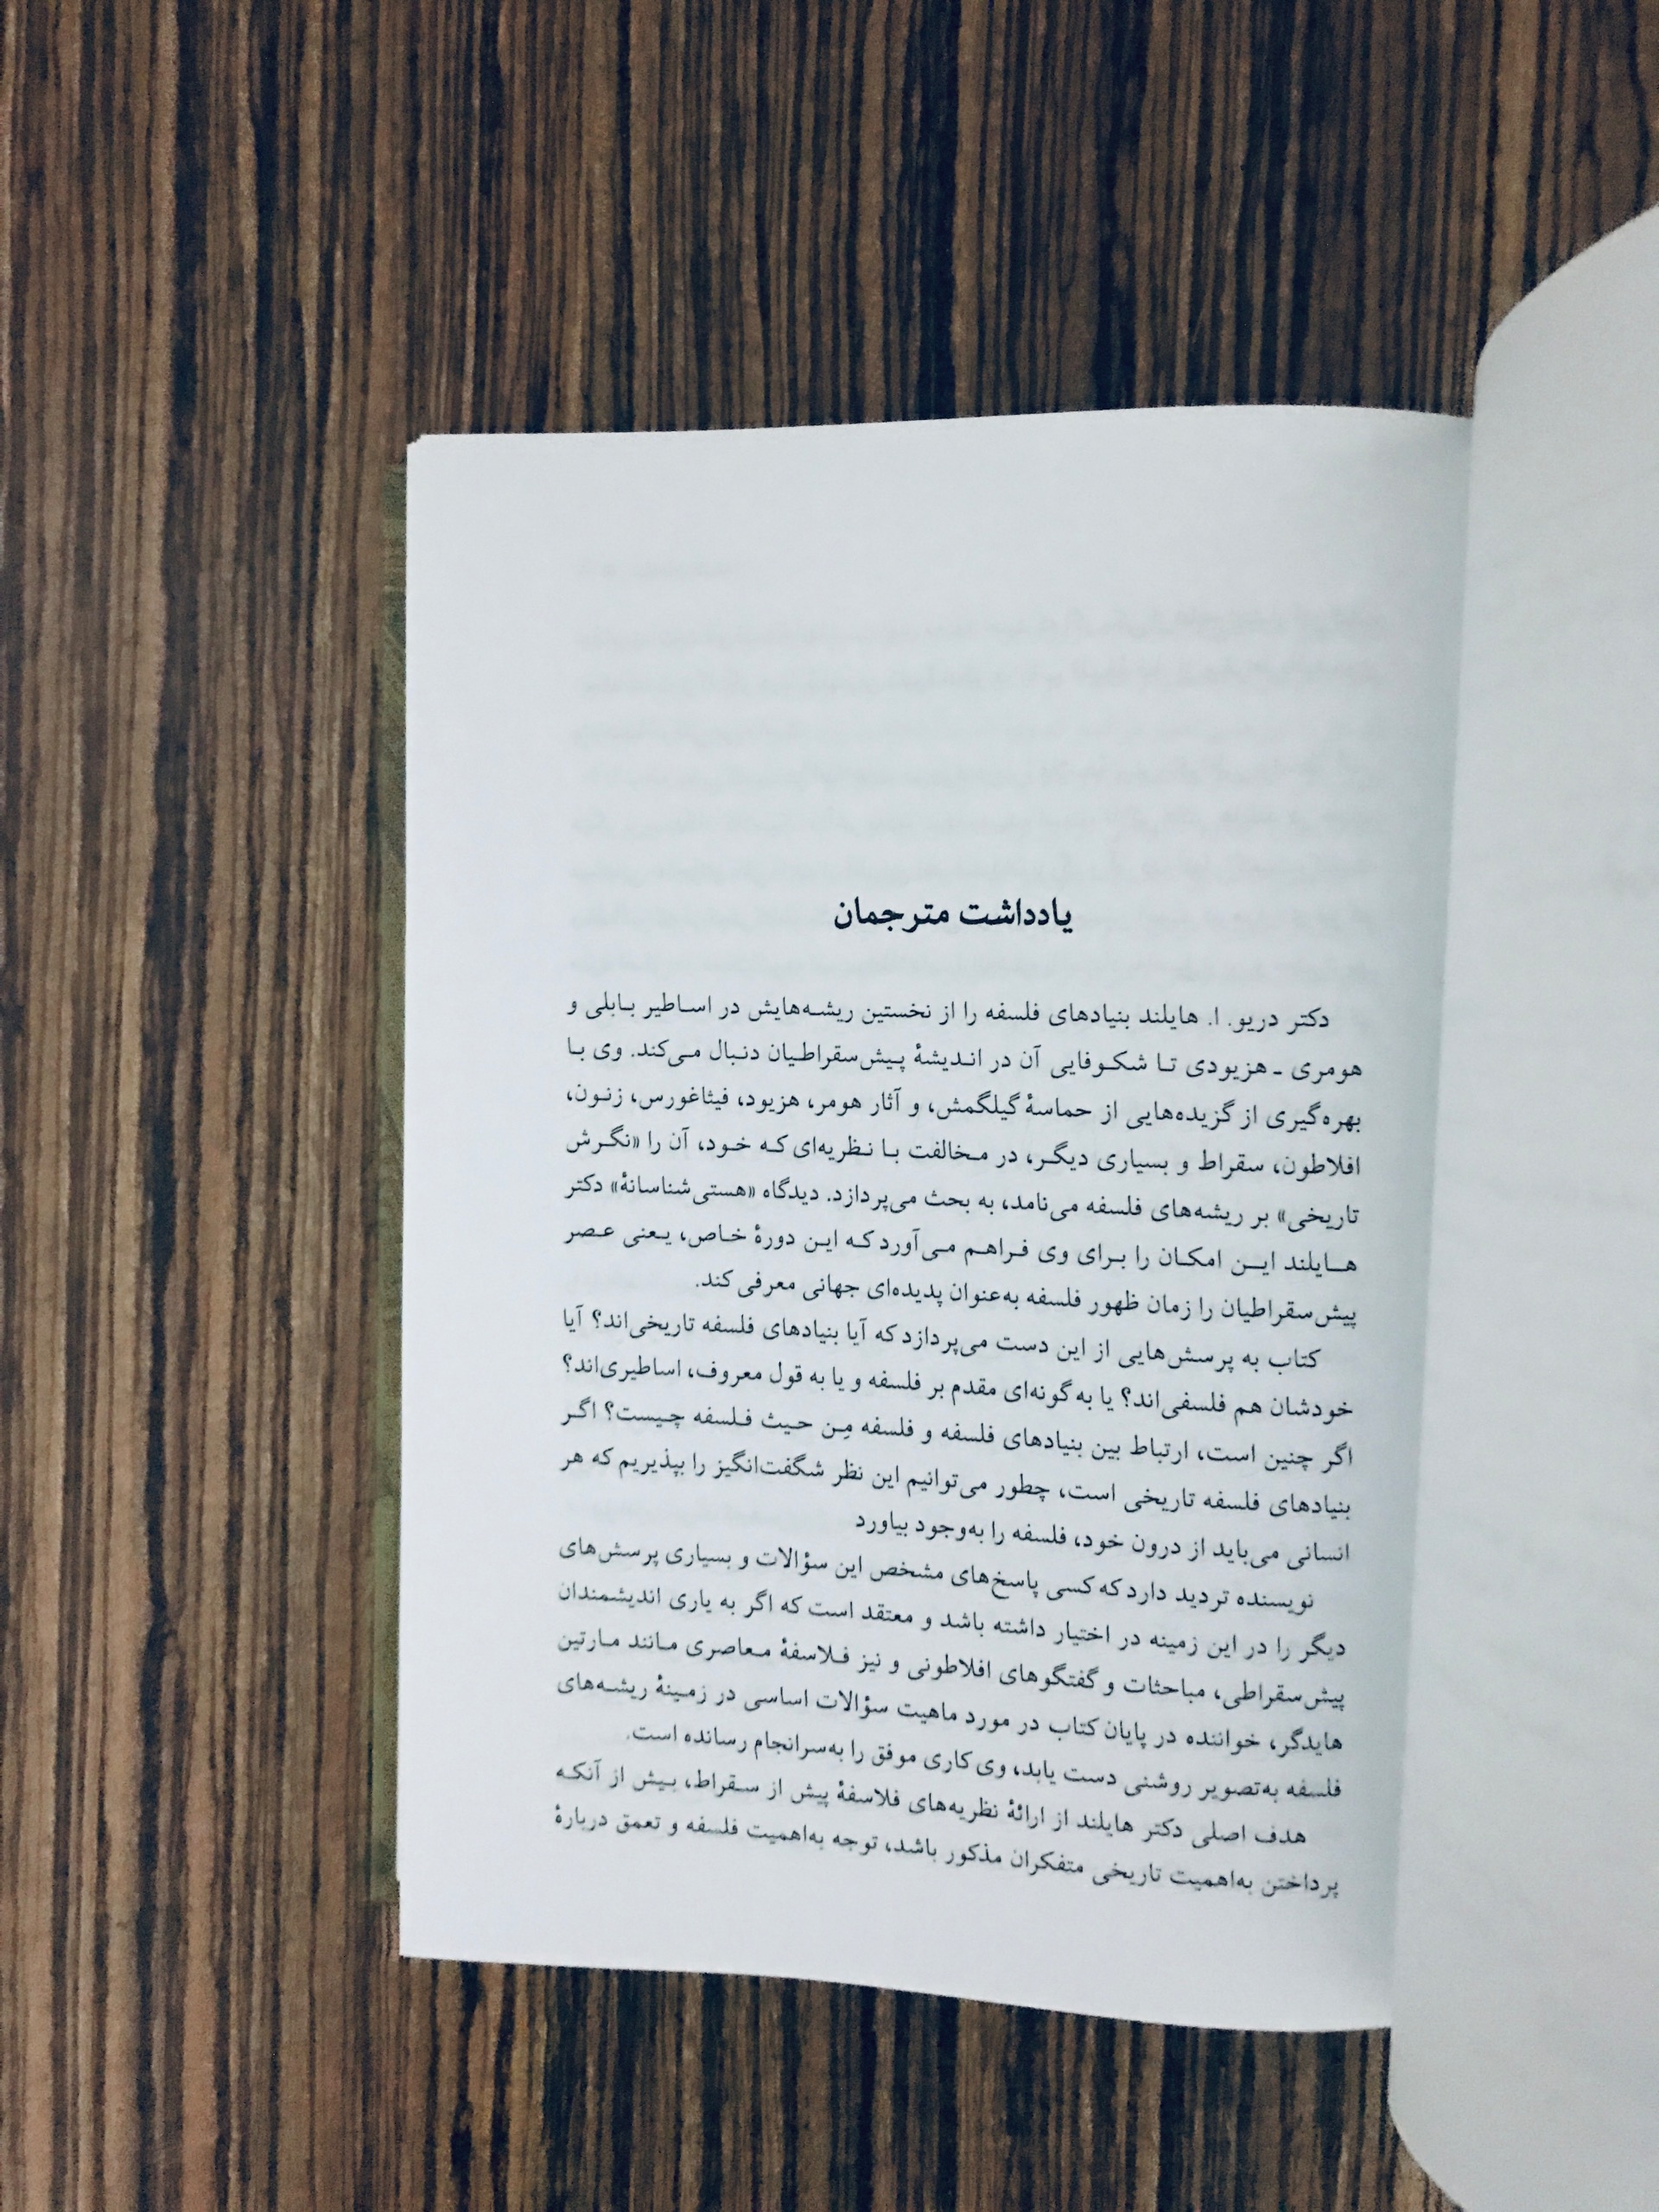 یادداشت مترجمان
دکتر دریو. ا. هایلند بنیادهای فلسفه را از نخستین ریشه‌هایش در اساطیر بابلی و
هومری ـ هزیودی تا شکوفایی آن در اندیشهٔ پیش‌سقراطیان دنبال می‌کند. وی با
بهره‌گیری از گزیده‌هایی از حماسهٔ گیلگمش، و آثار هومر، هزیود، فیثاغورس، زنون،
افلاطون، سقراط و بسیاری دیگر، در مخالفت با نظریه‌ای که خود، آن را «نگرش
تاریخی» بر ریشه‌های فلسفه می‌نامد، به بحث می‌پردازد. دیدگاه «هستی‌شناسانهٔ» دکتر
هایلند این امکان را برای وی فراهم می‌آورد که این دورهٔ خاص، یعنی عصر
پیش‌سقراطیان را زمان ظهور فلسفه به‌عنوان پدیده‌ای جهانی معرفی کند.
کتاب به پرسش‌هایی از این دست می‌پردازد که آیا بنیادهای فلسفه تاریخی‌اند؟ آیا
خودشان هم فلسفی‌اند؟ یا به گونه‌ای مقدم بر فلسفه و یا به قول معروف، اساطیری‌اند؟
اگر چنین است، ارتباط بین بنیادهای فلسفه و فلسفه مِن حیث فلسفه چیست؟ اگر
بنیادهای فلسفه تاریخی است، چطور می‌توانیم این نظر شگفت‌انگیز را بپذیریم که هر
انسانی می‌باید از درون خود، فلسفه را به‌وجود بیاورد
نویسنده تردید دارد که کسی پاسخ‌های مشخص این سؤالات و بسیاری پرسش‌های
دیگر را در این زمینه در اختیار داشته باشد و معتقد است که اگر به یاری اندیشمندان
پیش‌سقراطی، مباحثات و گفتگوهای افلاطونی و نیز فلاسفهٔ معاصری مانند مارتین
هایدگر، خواننده در پایان کتاب در مورد ماهیت سؤالات اساسی در زمینهٔ ریشه‌های
فلسفه به‌تصویر روشنی دست یابد، وی کاری موفق را به‌سرانجام رسانده است.
هدف اصلی دکتر هایلند از ارائهٔ نظریه‌های فلاسفهٔ پیش از سقراط، بیش از آنکه
پرداختن به‌اهمیت تاریخی متفکران مذکور باشد، توجه به‌اهمیت فلسفه و تعمق دربارهٔ